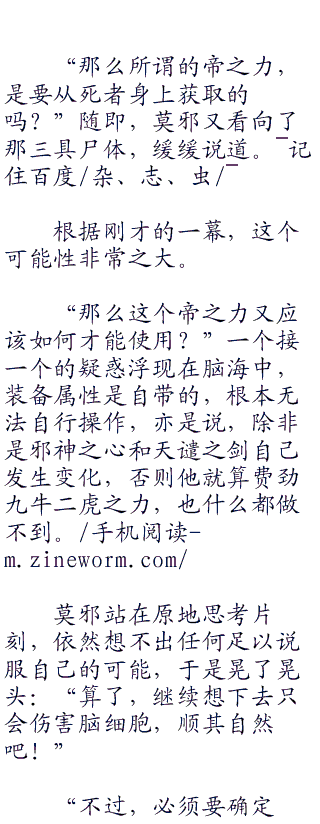 “那么所谓的帝之力，
是要从死者身上获取的
吗？”随即，莫邪又看向了
那三具尸体，缓缓说道。¯记
住百度/杂、志、虫/¯
根据刚才的一幕，这个
可能性非常之大。
“那么这个帝之力又应
该如何才能使用？”一个接
一个的疑惑浮现在脑海中，
装备属性是自带的，根本无
法自行操作，亦是说，除非
是邪神之心和天谴之剑自己
发生变化，否则他就算费劲
九牛二虎之力，也什么都做
不到。/手机阅读-
m.zineworm.com/
莫邪站在原地思考片
刻，依然想不出任何足以说
服自己的可能，于是晃了晃
头：“算了，继续想下去只
会伤害脑细胞，顺其自然
吧！”
“不过，必须要确定